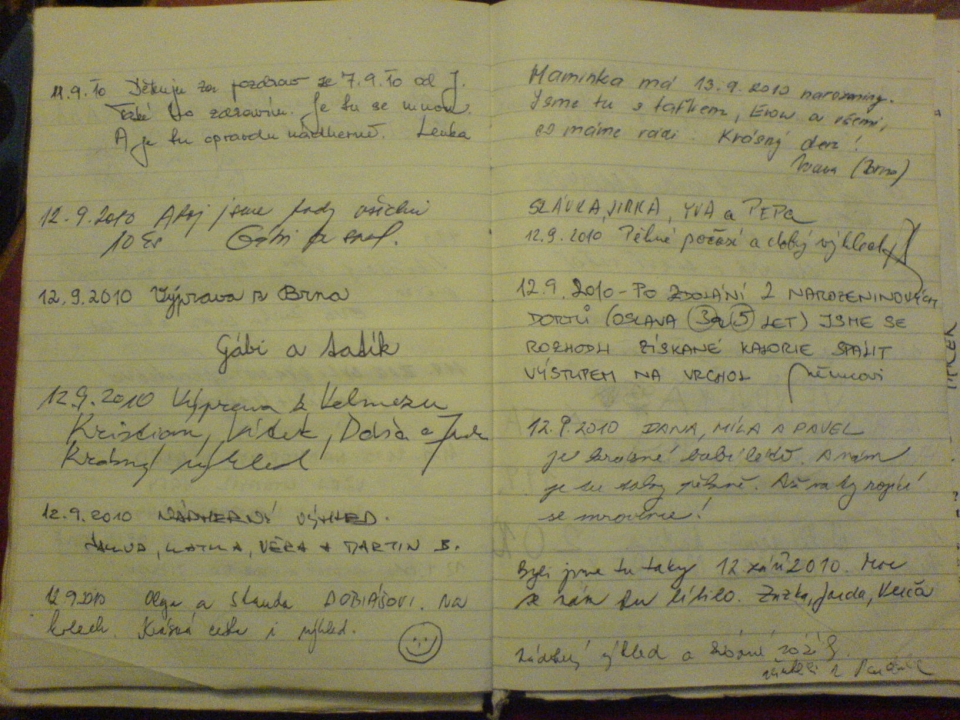 11.9.10 Děkuju za pozdrav ze 7.9.10 od J.
Také tě zdravím. Je tu se mnou.
A je tu opravdu nádherně. Lenka
12.9.2010 Ahoj jsme tady všichni
Gábi a spol.
12.9.2010 Výprava z Brna
Gábi a taťík
12.9.2010 Výprava z
Kristian, Vítek, Dáša a
Krásný výhled
12.9.2010 NÁDHERNÝ VÝHLED.
KATKA, VĚRA A MARTIN B.
12.9.2010 Olga a Standa DOBIÁŠOVI. Na
kolech. Krásná cesta i výhled.
Maminka má 13.9.2010 narozeniny.
Jsme tu s taťkem, a všemi,
co máme rádi. Krásný den!
Ivana (Brno)
SLÁVKA, JIRKA, IVA a PEPA
12.9.2010 Pěkné počasí a dobrý výhled
12.9.2010 - PO ZDOLÁNÍ 2 NAROZENINOVÝCH
DORTŮ (OSLAVA 3 a 5 LET) JSME SE
ROZHODLI ZÍSKANÉ KALORIE SPÁLIT
VÝSTUPEM NA VRCHOL Němcovi
12.9.2010 DANA, MÍLA A PAVEL
je krásné babí léto. A nám
je tu taky pěkně. Až na ty
se mravence!
Byli jsme tu taky 12 září 2010. Moc
se nám tu líbilo. Zuzka, Jarda, Verča
výhled a